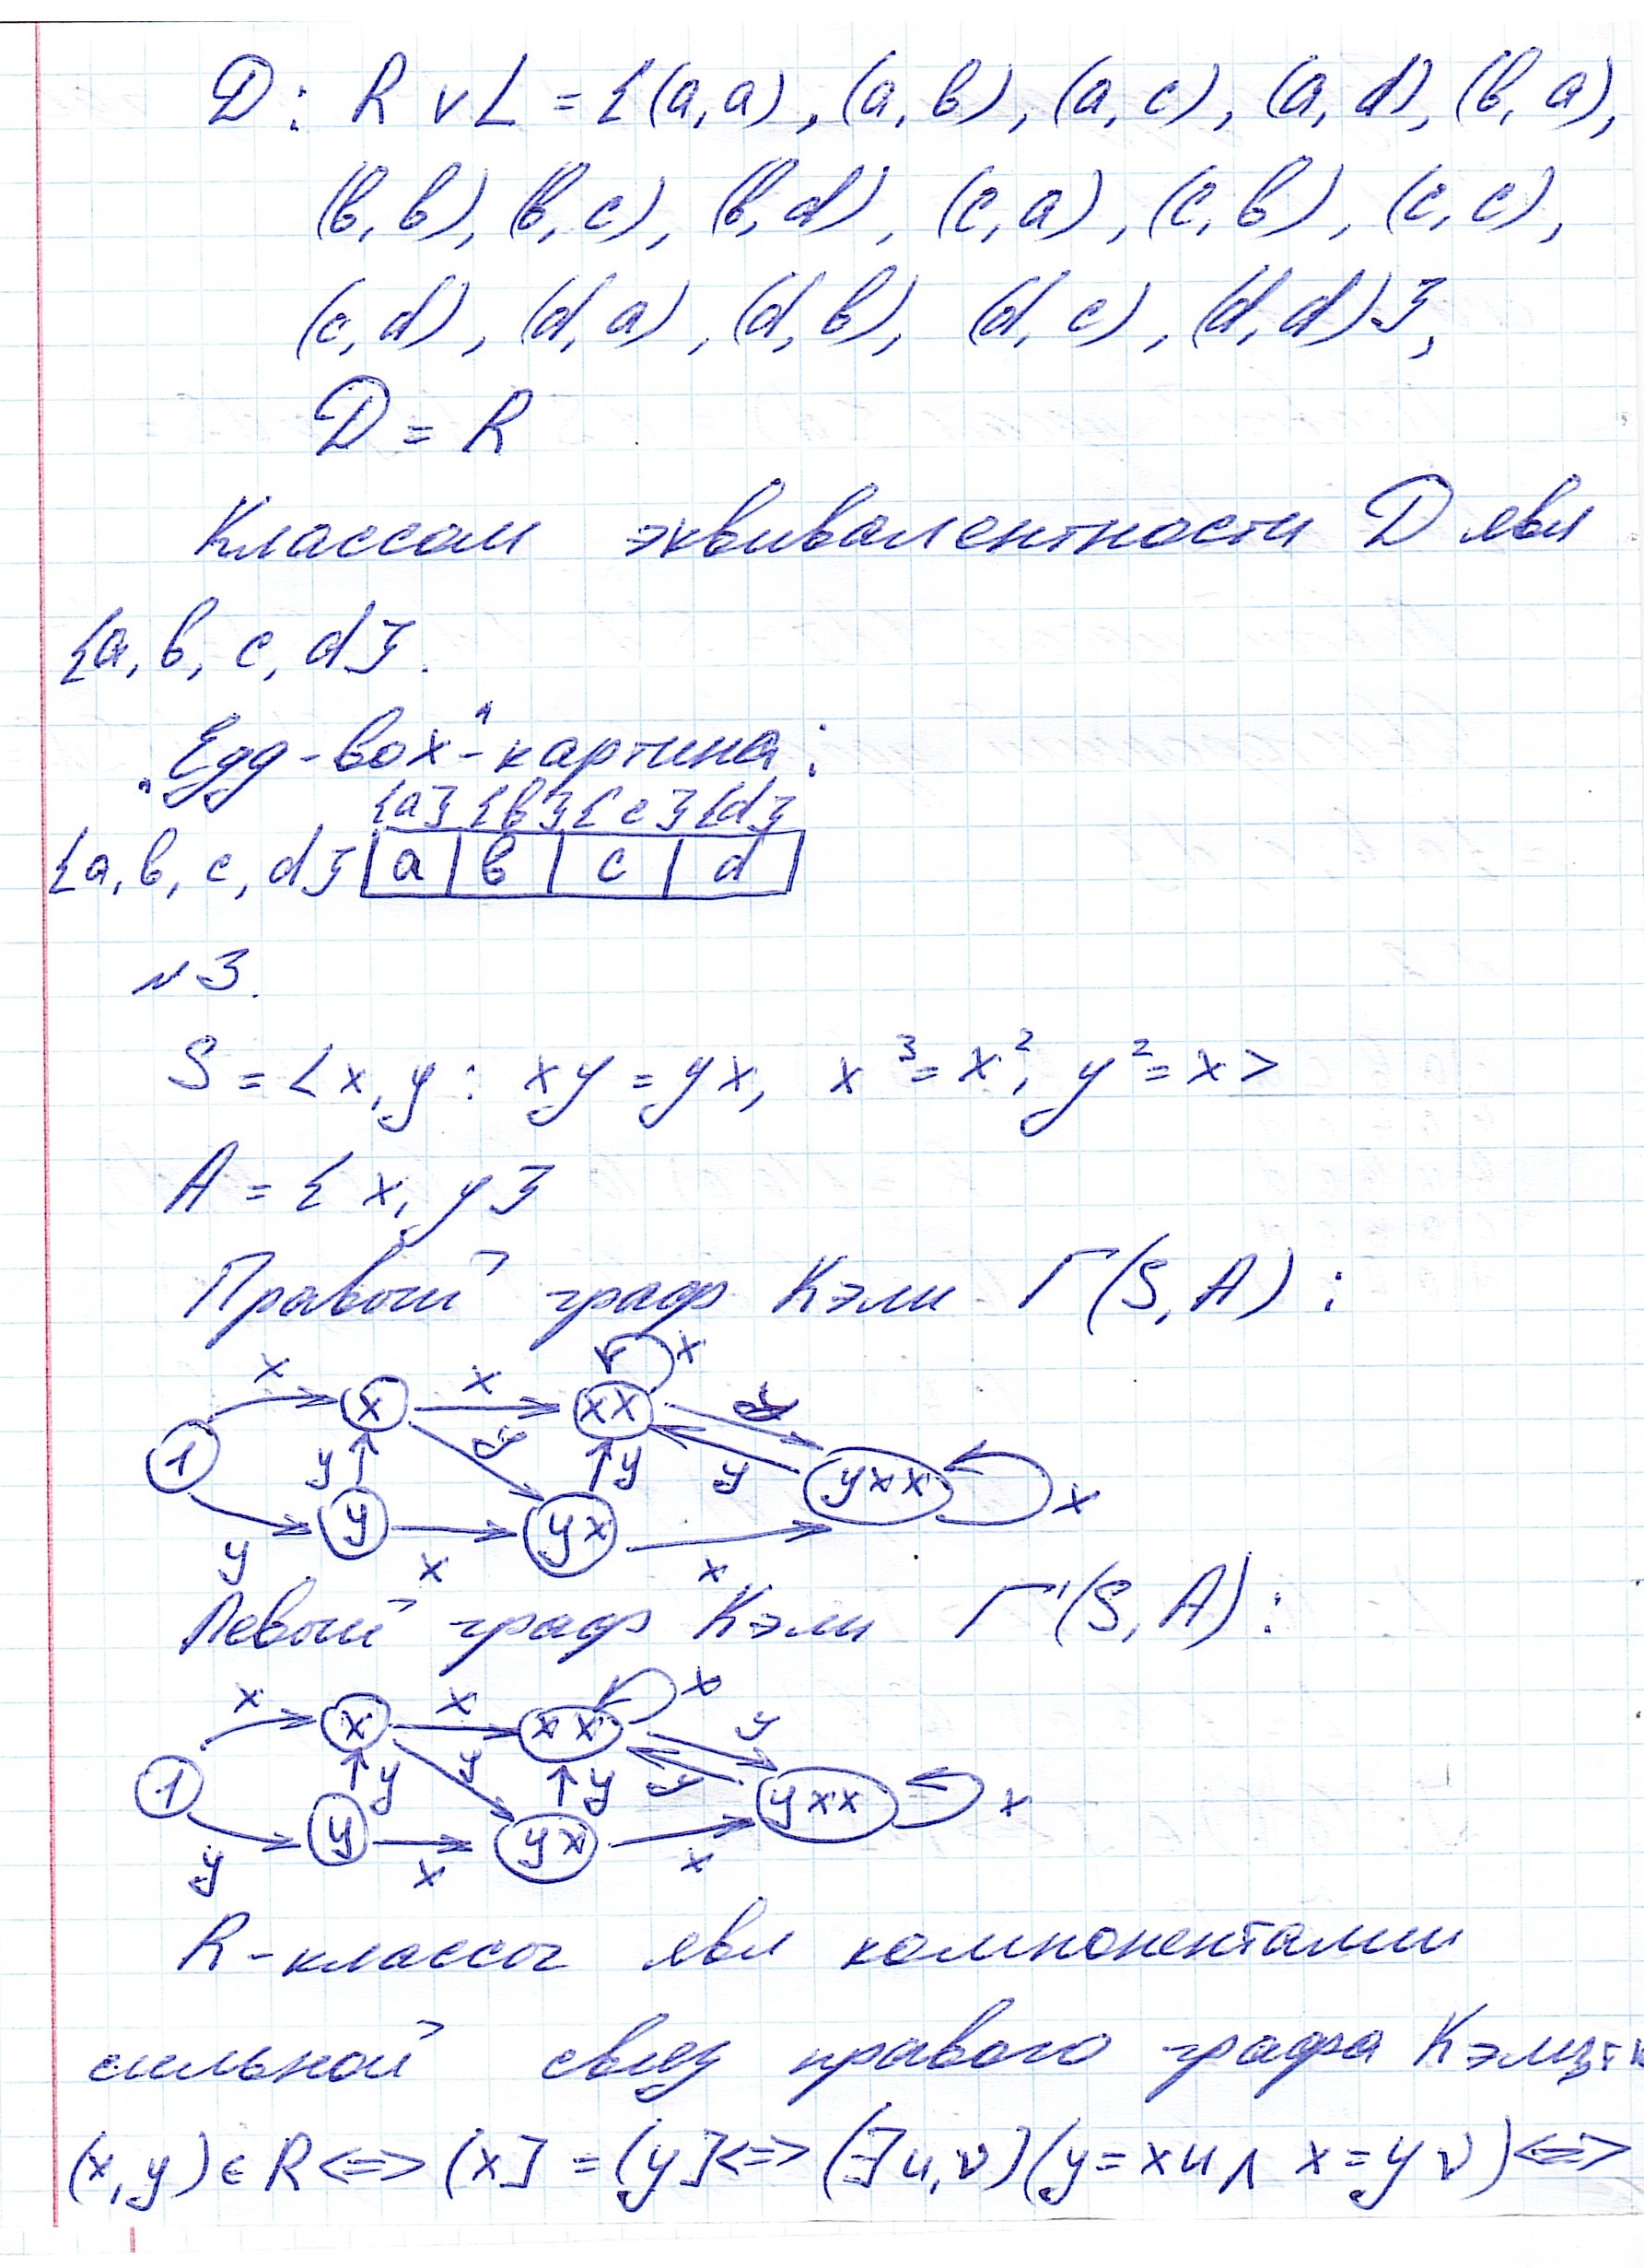 D: R ∨ L = {(a,a), (a,b), (a,c), (a,d), (b,a),
(b,b), (b,c), (b,d), (c,a), (c,b), (c,c),
(c,d), (d,a), (d,b), (d,c), (d,d)},
D = R
Классом эквивалентности D явл
{a, b, c, d}.
„Egg-box"-картина:
{a} {b} {c} {d}
{a, b, c, d} a b c d
№3.
S = <x, y : xy = yx, x³ = x², y² = x>
A = {x, y}
Правый граф Кэли Γ(S, A):
x x x
1 x xx y
y y y y yxx x
y yx
y x x
Левый граф Кэли Γ'(S, A):
x x x
1 x xx y
y y y y yxx x
y yx
y x x
R-классы явл компонентами
сильной связ правого графа Кэли, т к
(x, y) ∈ R <=> (x] = (y] <=> (∃ u, v)(y = xu ∧ x = yv) <=>